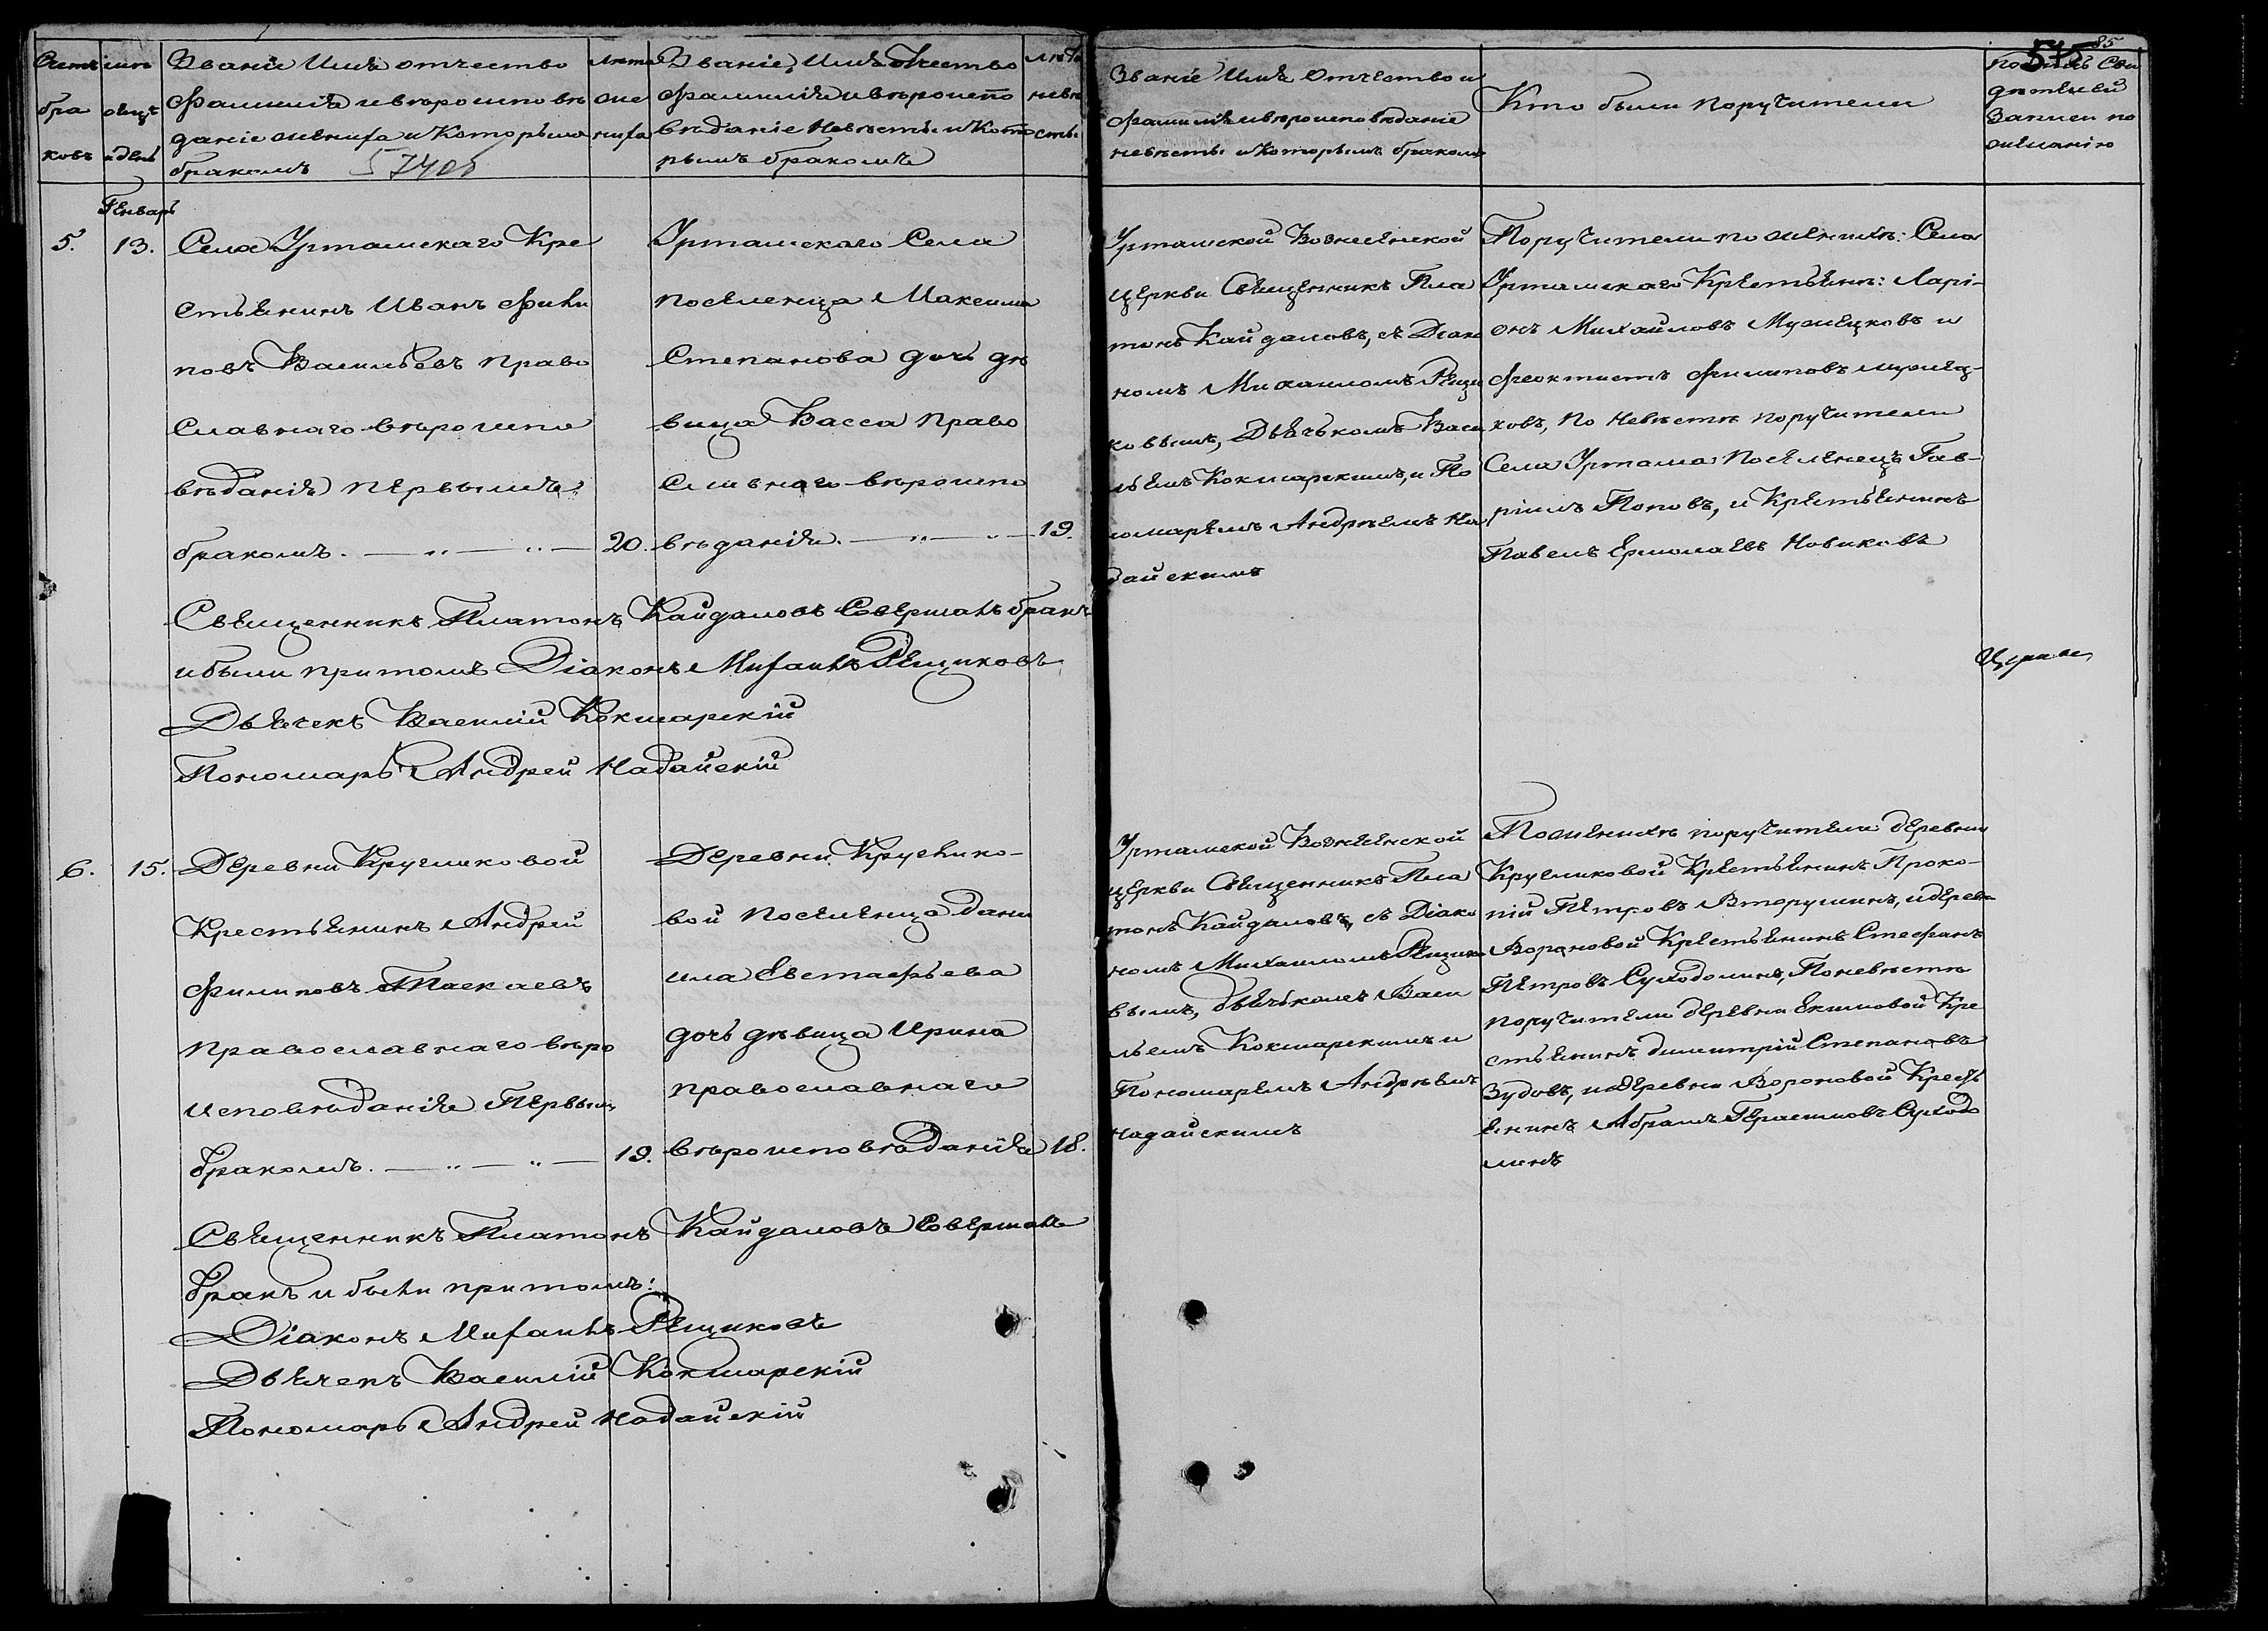 85
575
Счетъ
бра
ковъ
Званіе Имя отчество
Фамилія и вѣроисповѣ
даніе жениха и Которымъ
бракомъ 5740б
лѣта
же
ниха
Званіе, Имя Отчество
Фамилія и вѣроиспо
вѣданіе Невѣсты и Кото
рымъ бракомъ
лѣта
невѣ
сты
Званіе Имя Отчество и
фамилія и вѣроисповѣданіе
невѣсты и Которымъ бракомъ
Кто были поручители
Сви
дѣтелей
Записи по
желанію
Генварь
5.
13.
Села Уртамскаго Кре
стьянинъ Иванъ Фили
повъ Васильевъ право
славнаго вѣроиспо
вѣданія первымъ
бракомъ. — „ — „ —
20.
Уртамскаго Села
поселенца Максима
Степанова дочь дѣ
вица Васса право
славнаго вѣроиспо
вѣданія. — „ — „ —
19.
Священникъ Платонъ Кайдаловъ Совершалъ бракъ
и были притомъ Діаконъ Михаилъ Рещиковъ
Дьячекъ Василій Кокшарскій
Пономарь Андрей Надайскій
Уртамской Вознесенской
церкви Священникъ Пла
тонъ Кайдаловъ, съ Діако
номъ Михаиломъ Рещи
ковымъ, Дьячькомъ Васи
льемъ Кокшарскимъ, и По
номаремъ Андреемъ На
дайскимъ
Поручители по женихѣ: Села
Уртамскаго Крестьяне: Ларі-
онъ Михайловъ Мужецковъ и
Феоктистъ Филиповъ Мужец-
ковъ, По Невѣстѣ поручители
Села Уртама Поселенецъ Гав-
ріилъ Поповъ, и Крестьянинъ
Павелъ Ермолаевъ Новиковъ
6.
15.
Деревни Кругликовой
Крестьянинъ Андрей
Филиповъ Таскаевъ
православнаго вѣро
исповѣданія Первымъ
бракомъ. — „ — „ —
19.
Деревни Круглико-
вой Поселенца Дани
ила Евстафьева
дочь дѣвица Ирина
православнаго
вѣроисповѣданія
18.
Священникъ Платонъ Кайдаловъ Совершалъ
бракъ и были притомъ:
Діаконъ Михаилъ Рещиковъ
Дьячекъ Василій Кокшарскій
Пономарь Андрей Надайскій
Уртамской Вознесенской
церкви Священникъ Пла
тонъ Кайдаловъ, съ Діако
номъ Михаиломъ Рещико
вымъ, дьячькомъ Васи
льемъ Кокшарскимъ и
Пономаремъ Андреемъ
Надайскимъ
По женихѣ поручители деревни
Кругликовой Крестьянинъ Проко-
пій Петровъ Вторушинъ, и деревни
Вороновой Крестьянинъ Стефанъ
Петровъ Суходолинъ, По невѣстѣ
поручители деревни Екимовой Кре
стьянинъ Димитрій Степановъ
Зудовъ, и деревни Вороновой Кресть
янинъ Абрамъ Герасимовъ Суходо
линъ